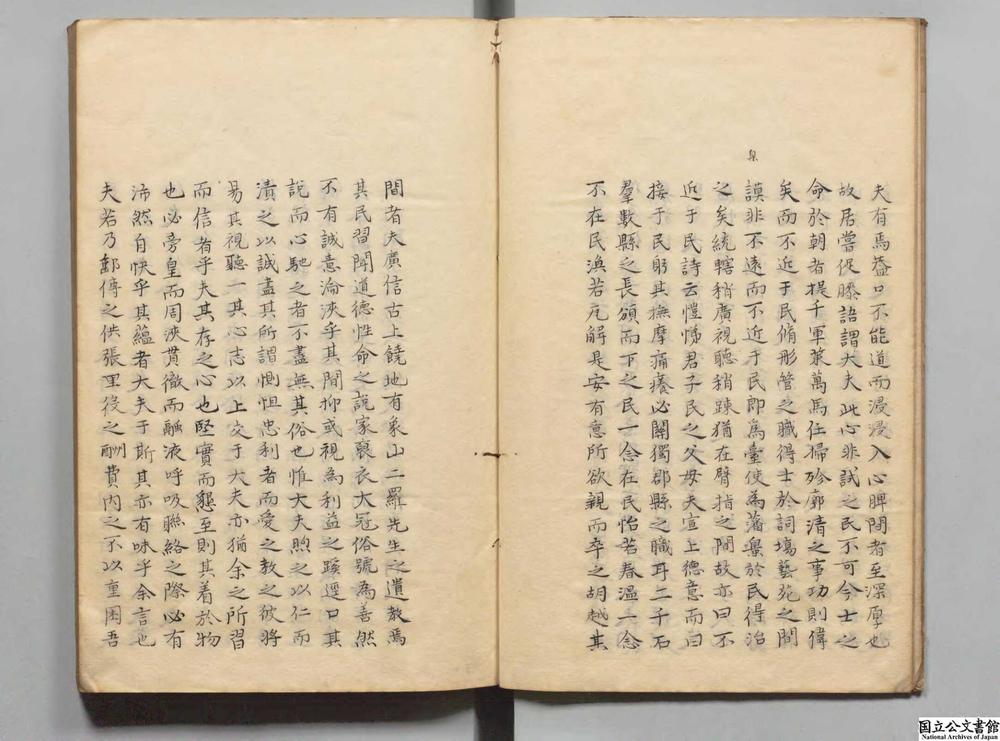 夫有焉益口不能道而浸浸入心脾間者至深厚也
故居嘗促䏁語謂大夫此心非試之民不可今士之
命於朝者提千軍策萬馬任掃殄廓清之事功則偉
矣而不近于民脩彤管之職得士於詞塲藝苑之間
謨非不遠而不近于民即為臺使為藩臬於民得治
臬
之矣統轄稍廣視聽稍踈猶在臂指之間故亦曰不
近于民詩云愷悌君子民之父母夫宣上德意而曰
接于民躬其撫摩痛癢必關獨郡縣之職耳二千石
羣數縣之長頫而下之民一念在民怡若春溫一念
不在民渙若瓦解是安有意所欲親而卒之胡越其
間者夫廣信古上饒地有象山二羅先生之遺教焉
其民習聞道德性命之說家裒衣大冠俗號為善然
不有誠意淪浹乎其間抑或視為利益之蹊逕口其
說而心馳之者不盡無其俗也惟大夫煦之以仁而
漬之以誠盡其所謂惻怛忠利者而愛之教之彼將
易其視聽一其心志以上交于大夫亦猶余之所習
而信者乎夫其存之心也堅實而懇至則其着於物
也必旁皇而周浹貫徹而融液呼吸聯絡之際必有
沛然自快乎其蘊者大夫于斯其亦有味乎余言也
夫若乃郵傳之供張里役之酬費內之不以重困吾
国立公文書館
National Archives of Japan